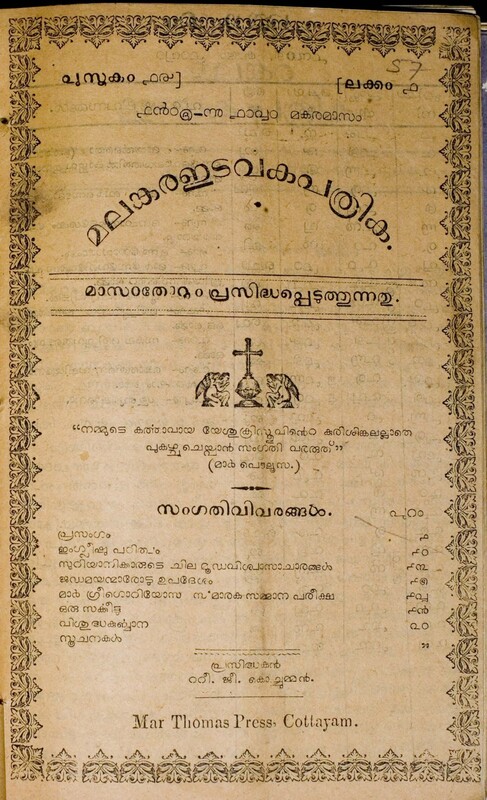 57
പുസ്തകം ൧൨] [ലക്കം ൧
൧൯൦൩-ന്നു ൧൦൭൮ മകരമാസം
മലങ്കരഇടവകപത്രിക.
മാസംതോറും പ്രസിദ്ധപ്പെടുത്തുന്നതു.
“നമ്മുടെ കൎത്താവായ യേശുക്രിസ്തുവിൻെറ കുരിശിങ്കലല്ലാതെ
പുകഴ്ചചെയ്വാൻ സംഗതി വരരുത്”
(മാർ പൌലൂസ.)
സംഗതിവിവരങ്ങൾ. പുറം
പ്രസംഗം ൧
ഇംഗ്ലീഷു പഠിത്വം ൧൦
സുറിയാനിക്കാരുടെ ചില മൂഢവിശ്വാസാചാരങ്ങൾ
ജഡമയന്മാരോടു ഉപദേശം
മാർ ഗ്രീഗൊറിയോസ സ്മാരക സമ്മാന പരീക്ഷ
ഒരു സങ്കീൎത്ത ൧൯
വിശുദ്ധകുൎബ്ബാന ൨൦
സൂചനകൾ ”
പ്രസിദ്ധകൻ
റവ. ജീ. കൊച്ചുമ്മൻ.
Mar Thomas Press, Cottayam.